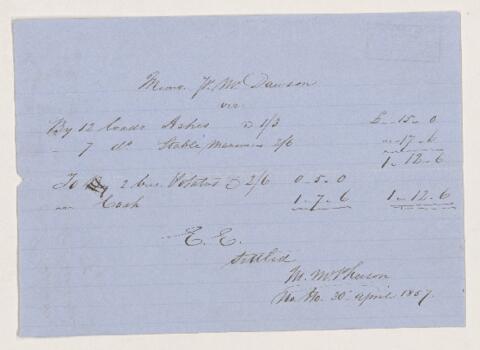 Memo. J. Wm Dawson
viz.
By 12 loads Ashes @ 1/3 £ " 15 " 0
" 7 do Stable Manure 2/6 " 17 " 6
1 " 12 " 6
To 2 bus. Potatoes @ 2/6 0 " 5 " 0
" Cash 1 " 7 " 6 1 " 12 " 6
E. E.
Settled
M. McPherson
30 April 1857